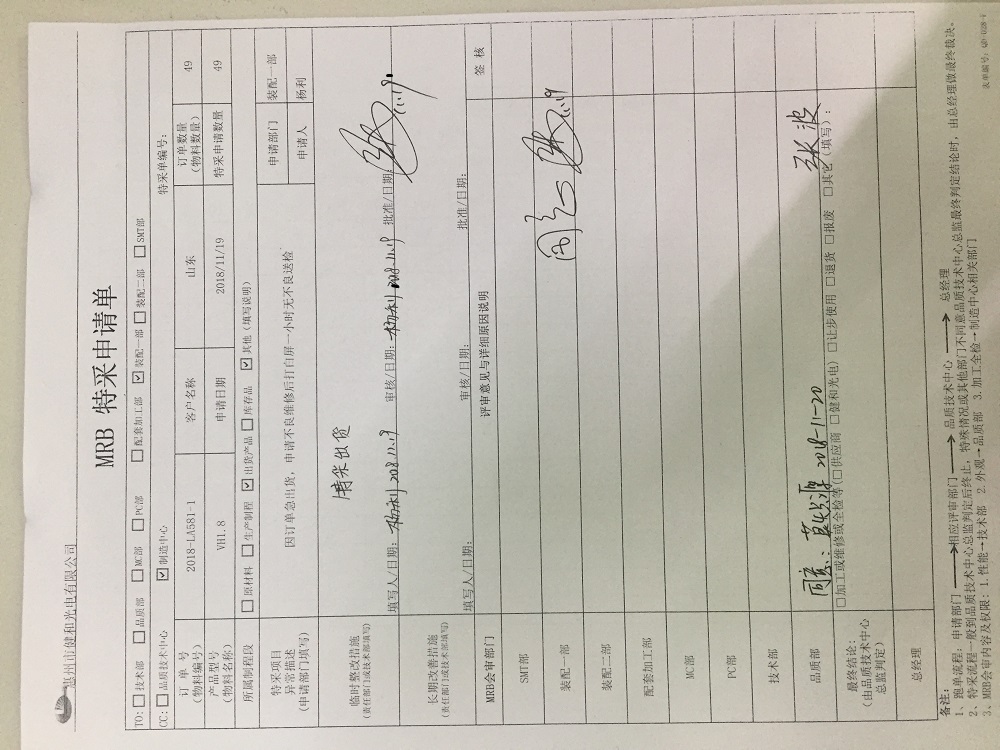 惠州市健和光电有限公司
MRB 特采申请单
TO: □ 技术部 □ 品质部 □ MC部 □ PC部 □ 配套加工部 ☑ 装配一部 □ 装配二部 □ SMT部
CC: □ 品质技术中心 ☑ 制造中心 特采单编号:
订 单 号 (物料编号) 2018-LA581-1 客户名称 山东 订单数量 (物料数量) 49
产品型号 (物料名称) VH1.8 申请日期 2018/11/19 特采申请数量 49
所属制程段 □ 原材料 □ 生产制程 ☑ 出货产品 □ 库存品 ☑ 其他(填写说明) 申请部门 装配一部
申请人 杨利
特采项目
异常描述
(申请部门填写)
因订单急出货,申请不良维修后打白屏一小时无不良送检
临时整改措施
(责任部门或技术部填写)
特采出货
填写人/日期: 杨利 2018.11.19 审核/日期: 杨利 2018.11.19 批准/日期: 11.19
长期改善措施
(责任部门或技术部填写)
填写人/日期: 审核/日期: 批准/日期:
MRB会审部门 评审意见与详细原因说明 签 核
SMT部
装配一部 11.19
装配二部
配套加工部
MC部
PC部
技术部
品质部 张波
最终结论:
(由品质技术中心
总监判定)
同意: 2018-11-20
□加工或维修或全检等(□供应商 □健和光电) □让步使用 □退货 □报废 □其它(填写):
总经理
备注:
1、跑单流程: 申请部门 → 相应评审部门 → 品质技术中心 → 总经理
2、特采流程一般到品质技术中心总监判定后终止, 特殊情况或其他部门不同意品质技术中心总监最终判定结论时, 由总经理做最终裁决。
3、MRB会审内容及权限: 1.性能→技术部 2.外观→品质部 3.加工全检→制造中心相关部门
表单编号: QD-028-1